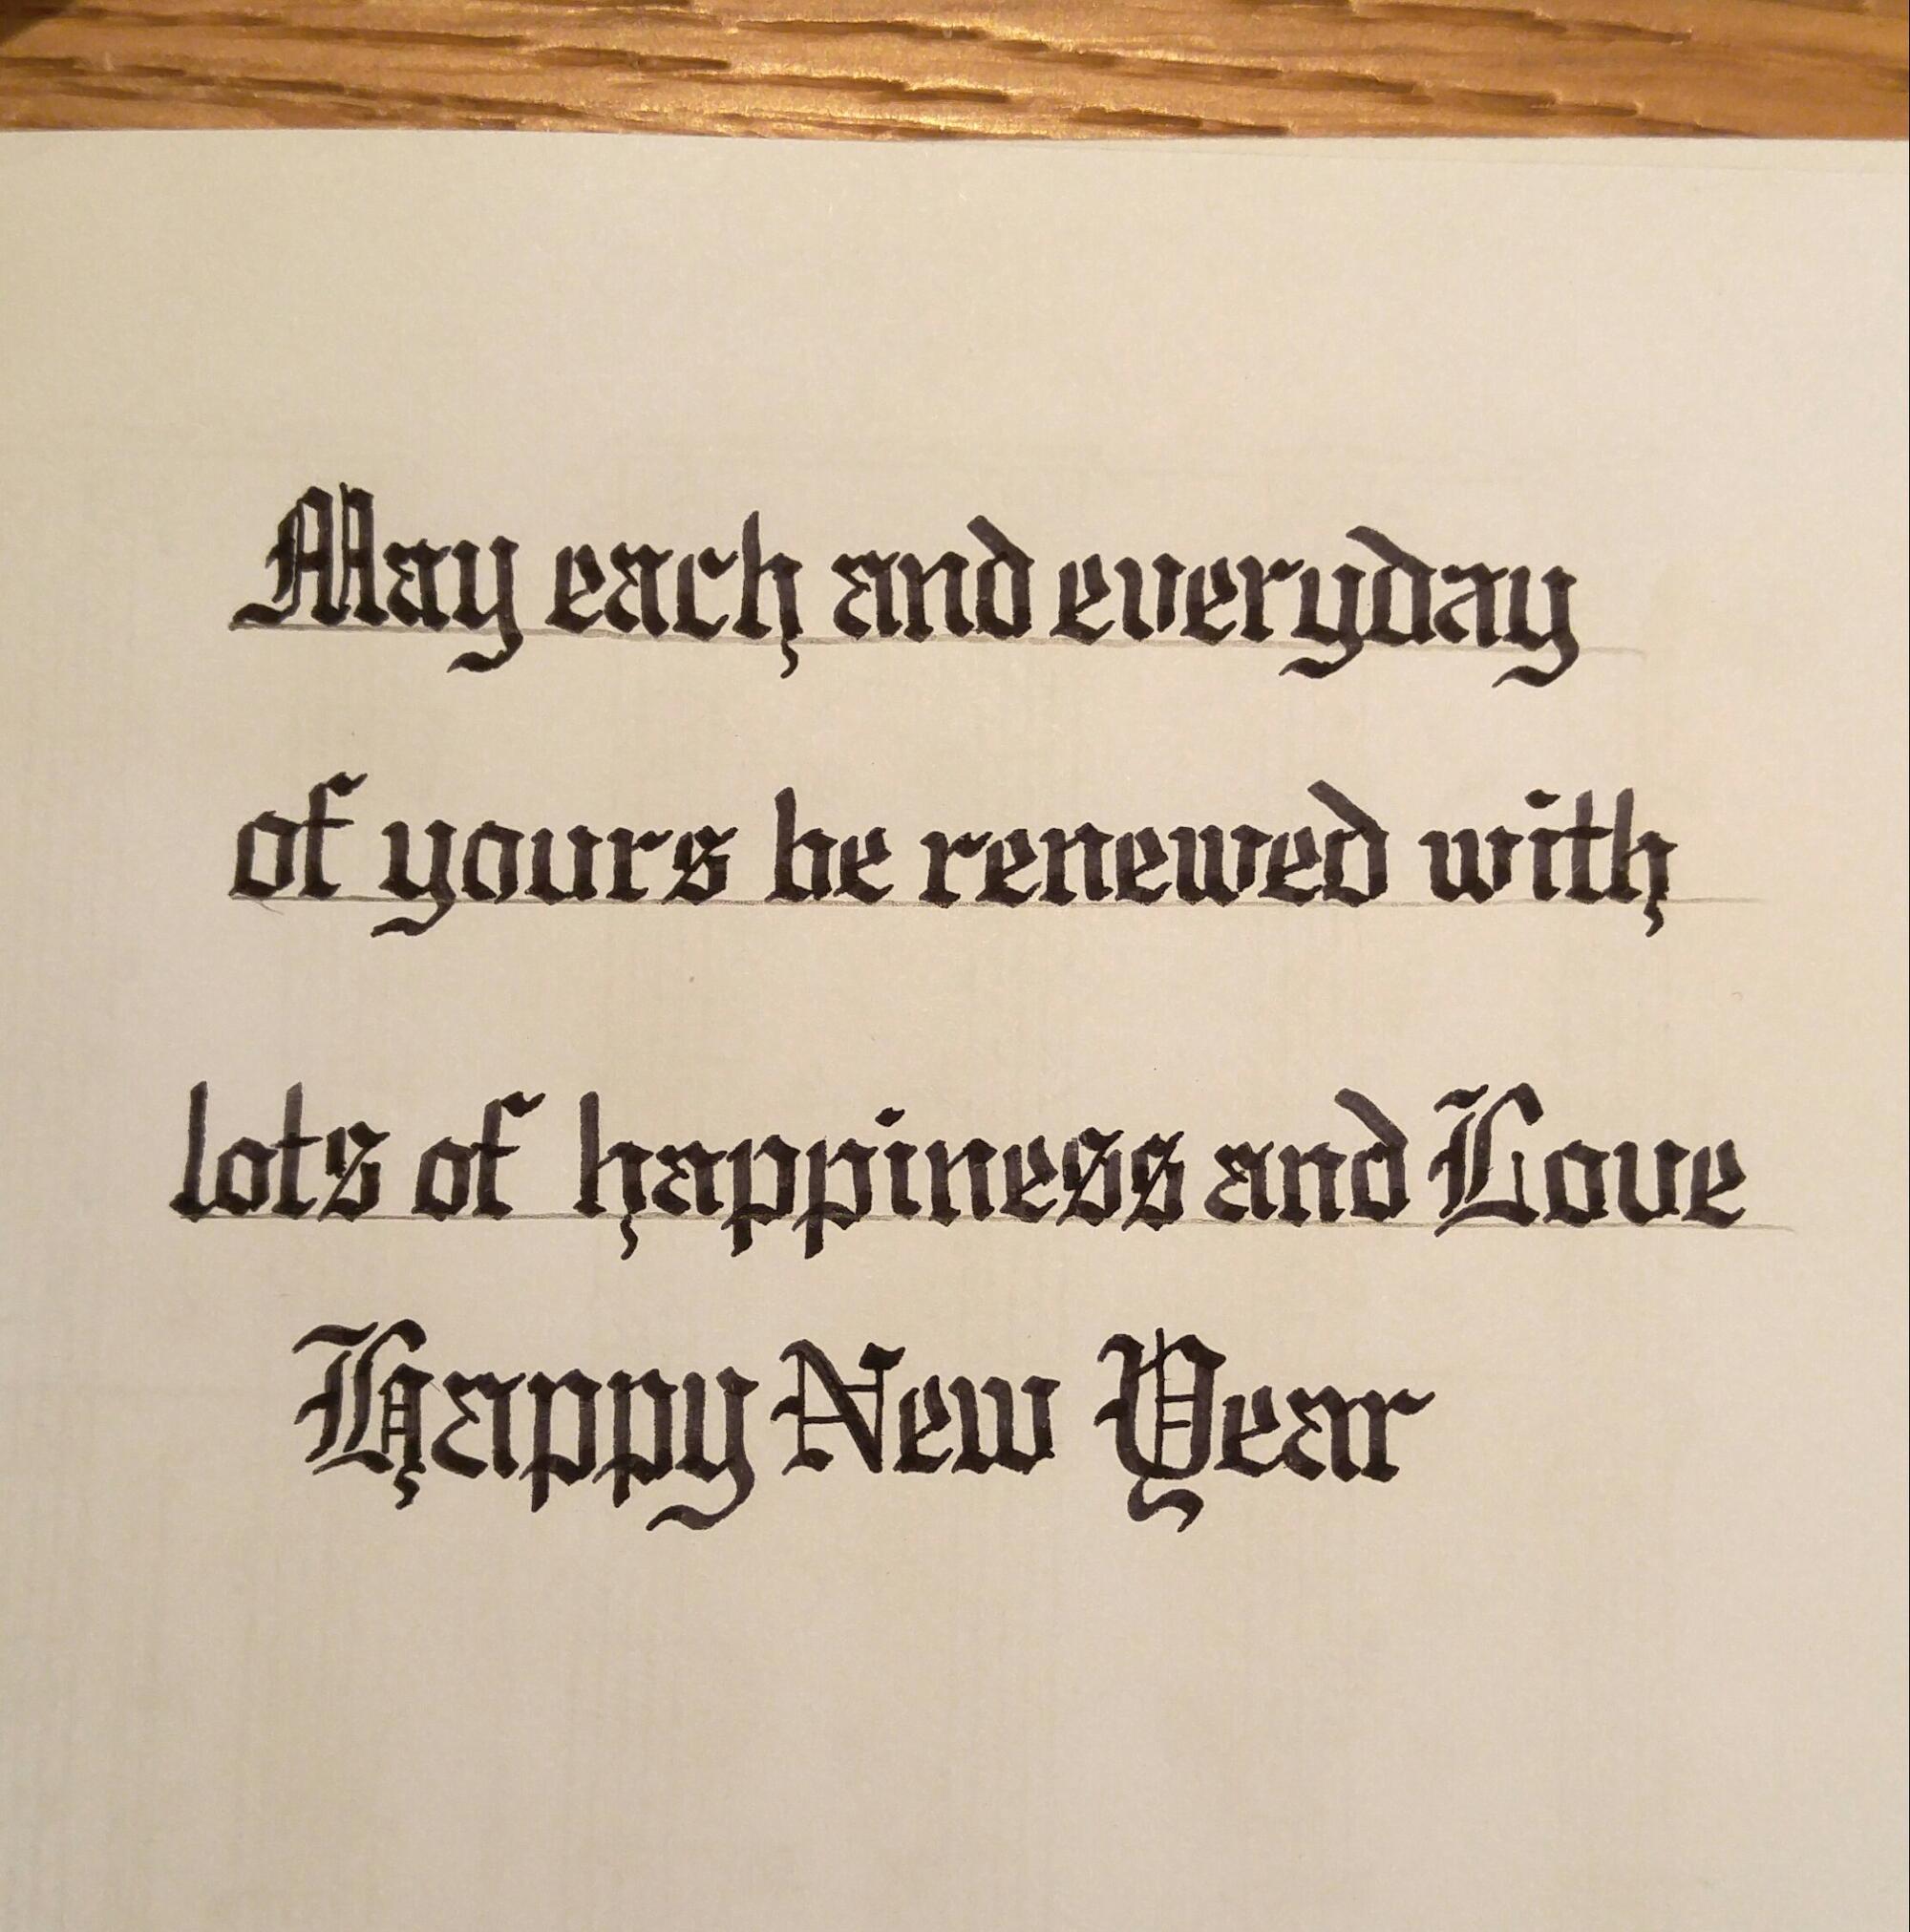 May each and everyday
of yours be renewed with
lots of happiness and Love
Happy New Year